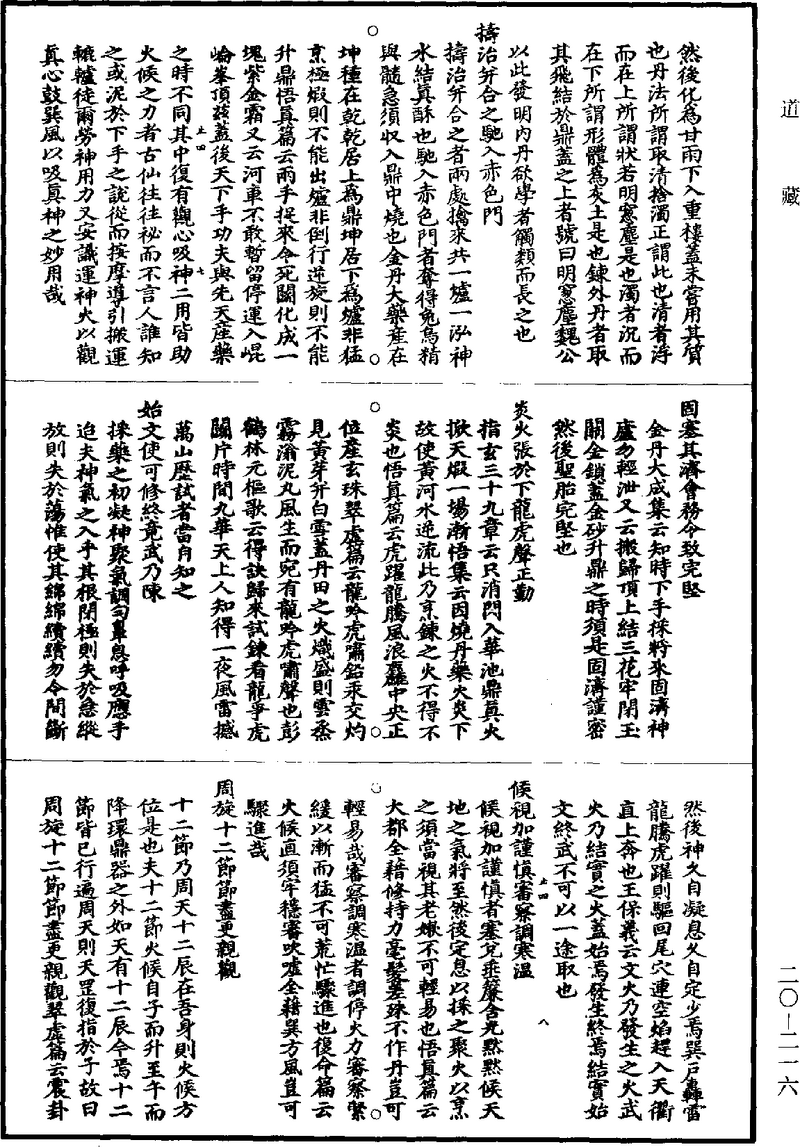 道藏
然後化為甘雨下入重樓蓋未嘗用其質
也丹法所謂取清捨濁正謂此也清者浮
而在上所謂狀若明窻塵是也濁者沉而
在下所謂形體為灰土是也鍊外丹者取
其飛結於鼎蓋之上者號曰明窻塵魏公
以此發明內丹欲學者觸類而長之也
擣治并合之馳入赤色門
擣治并合之者兩處擒來共一爐一泓神
水結真酥也馳入赤色門者奪得兔烏精
與髓急須収入鼎中燒也金丹大藥產在
坤種在乾乾居上為鼎坤居下為爐非猛
烹極煅則不能出爐非倒行逆旋則不能
升鼎悟真篇云兩手捉來令死鬭化成一
塊紫金霜又云河車不敢暫留停運入崐
崘峯頂茲蓋後天下手功夫與先天產藥
上四 七
之時不同其中復有觀心吸神二用皆助
火候之力者古仙往往祕而不言人誰知
之或泥於下手之說從而按摩導引搬運
轆轤徒爾勞神用力又安識運神火以觀
真心鼓巽風以吸真神之妙用哉
固塞其濟會務令致完堅
金丹大成集云知時下手採將來固濟神
廬勿輕泄又云搬歸頂上結三花牢閉玉
關金鎖蓋金砂升鼎之時須是固濟謹密
然後聖胎完堅也
炎火張於下龍虎聲正勤
指玄三十九章云只消閂入華池鼎真火
掀天煅一場漸悟集云因燒丹藥火炎下
故使黃河水逆流此乃烹鍊之火不得不
炎也悟真篇云虎躍龍騰風浪麤中央正
位產玄珠翠虛篇云龍吟虎嘯鉛汞交灼
見黃芽并白雪蓋丹田之火熾盛則雲蒸
霧滃泥丸風生而宛有龍吟虎嘯聲也彭
鶴林元樞歌云得訣歸來試鍊看龍爭虎
鬭片時間九華天上人知得一夜風雷撼
萬山歷試者當自知之
始文使可修終竟武乃陳
採藥之初凝神聚氣調勻鼻息呼吸應手
迨夫神氣之入乎其根閉極則失於急縱
放則失於蕩惟使其綿綿續續勿令間斷
然後神久自凝息久自定少焉巽戶轟雷
龍騰虎躍則驅回尾穴連空焰趕入天衢
直上奔也王保義云文火乃發生之火武
火乃結實之火蓋始焉發生終焉結實始
文終武不可以一途取也
候視加謹慎審察調寒温
上四 八
候視加謹慎者塞兌垂簾含光默默候天
地之氣將至然後定息以採之聚火以烹
之須當視其老嫩不可輕易也悟真篇云
大都全藉修持力毫髮差殊不作丹豈可
輕易哉審察調寒溫者調停火力審察緊
緩以漸而猛不可荒忙驟進也復命篇云
火候直須牢穩審吹噓全藉巽方風豈可
驟進哉
周旋十二節節盡更親觀
十二節乃周天十二辰在吾身則火候方
位是也夫十二節火候自子而升至午而
降環鼎器之外如天有十二辰今焉十二
節皆已行遍周天則天罡復指於子故曰
周旋十二節節盡更親觀翠虛篇云震卦
二〇—二一六